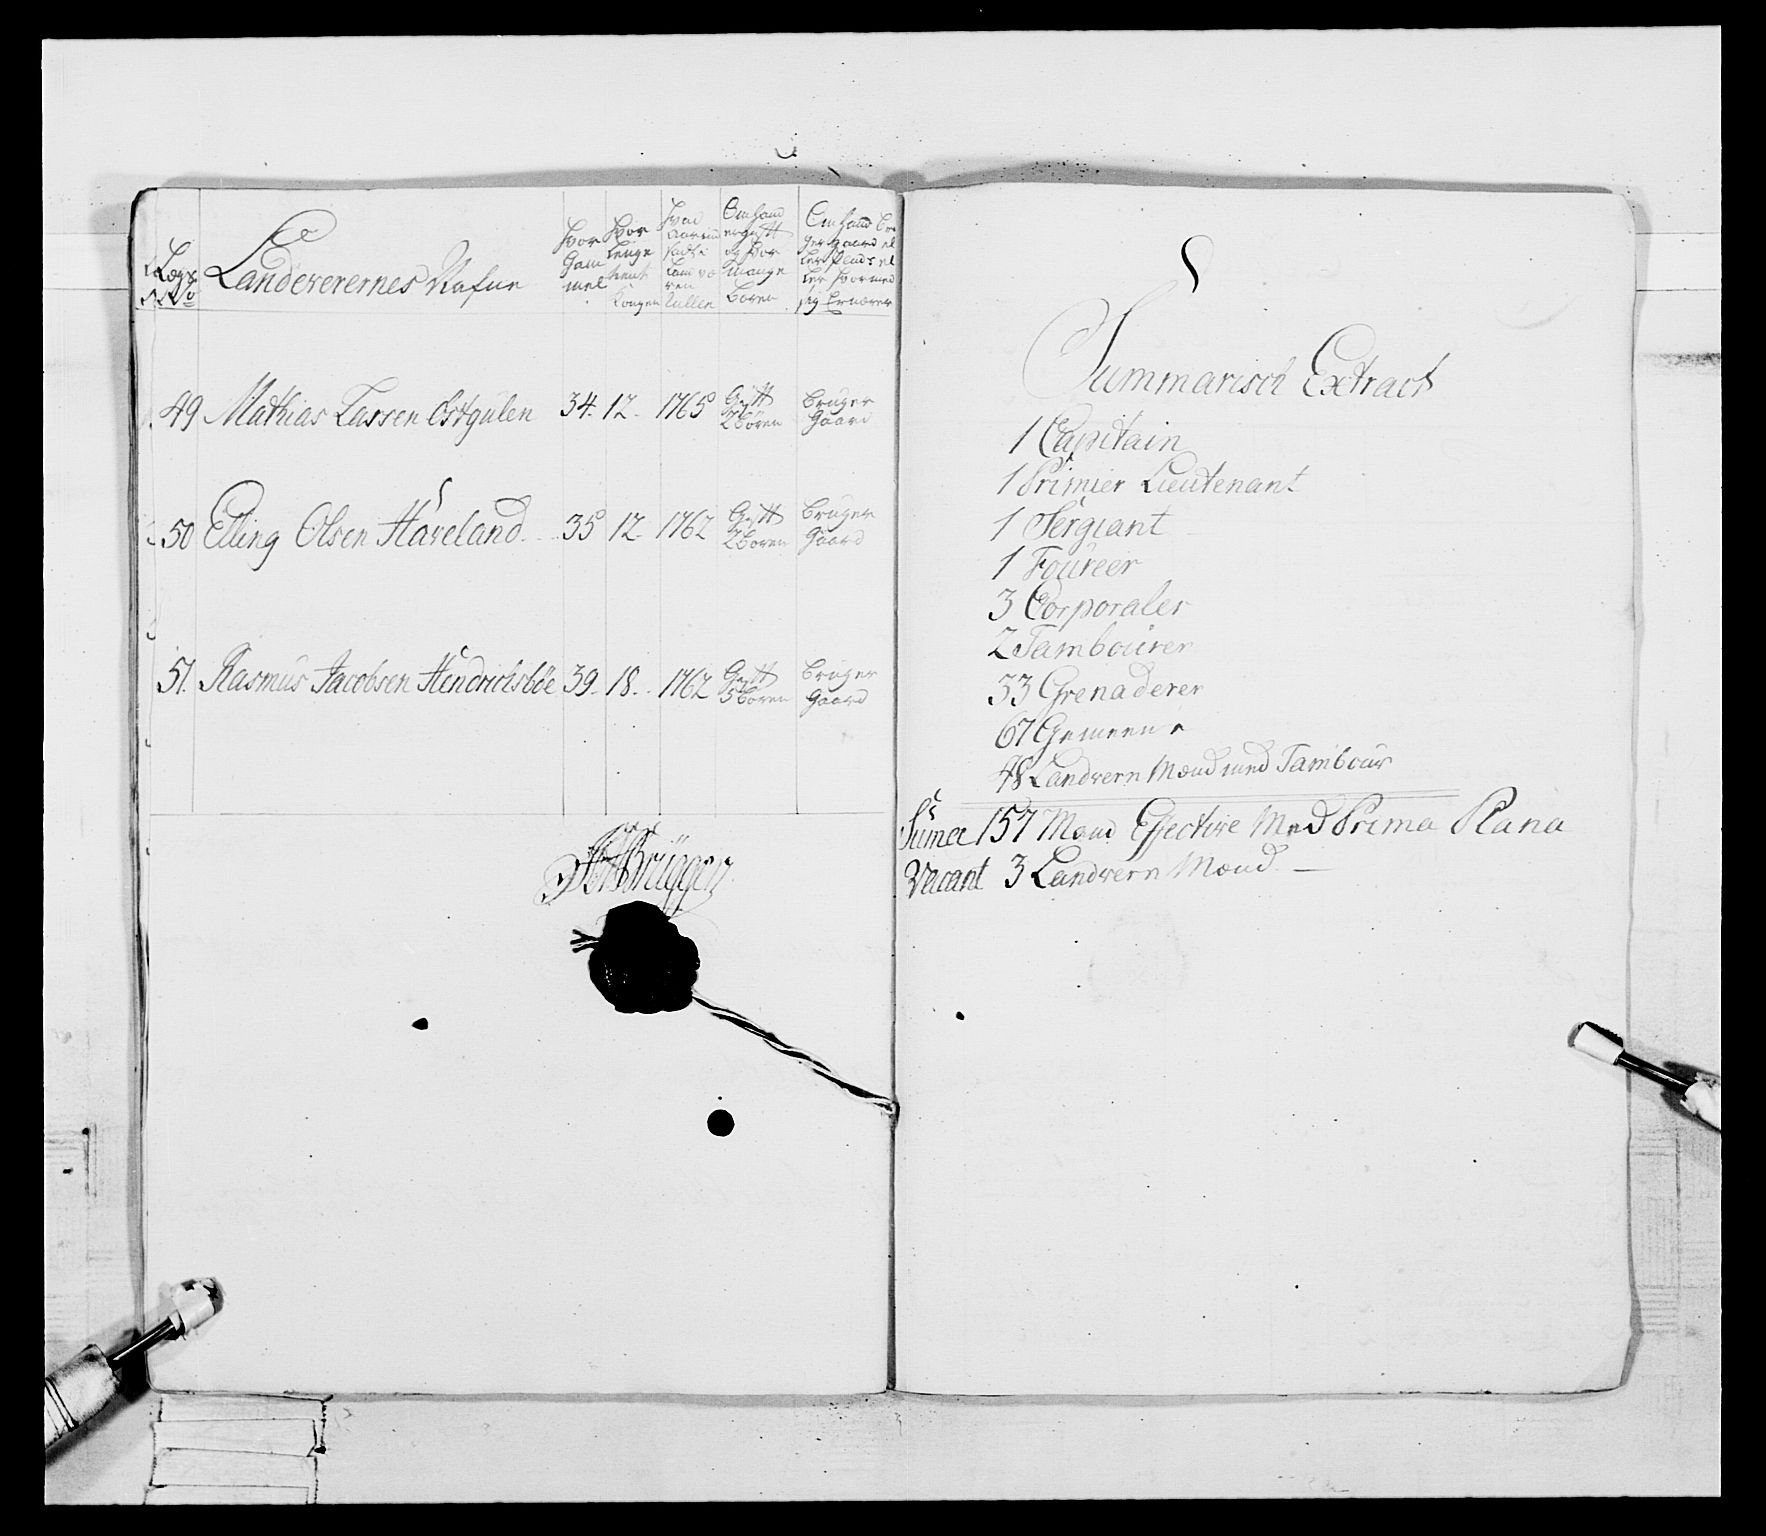 Lægs No
Landeverernes Nafne
hvor Gammel
hvor lenge tient Kongen
hvad Aar ind sadt i Landværen Rullen
Om hand er gift og hvor mange Børen
Om hand bruger gaard eller Plads eller hvormed sig Ernærer
49 Mathias Lassen Østgulen 34. 12. 1765 Gift 2 Børen Bruger Gaard
50 Elling Olsen Haveland 35 12. 1762 Gift 2 Boren Bruger Gaard
51. Rasmus Jacobsen Hendrichsbøe 39. 18. 1762 Gift 3 Boren Bruger Gaard
Brüggen
Summarisch Extract
1 Capitain
1 Primier Lieutenant
1 Sergiant
1 Foureer
3 Corporaler
2 Tambourer
33 Grenaderer
67 Gemeene
48 Landvern Mænd med Tambour
Sumа 157 Mand Effective Med Prima Plana
Vacant 3 Landvern Mænd